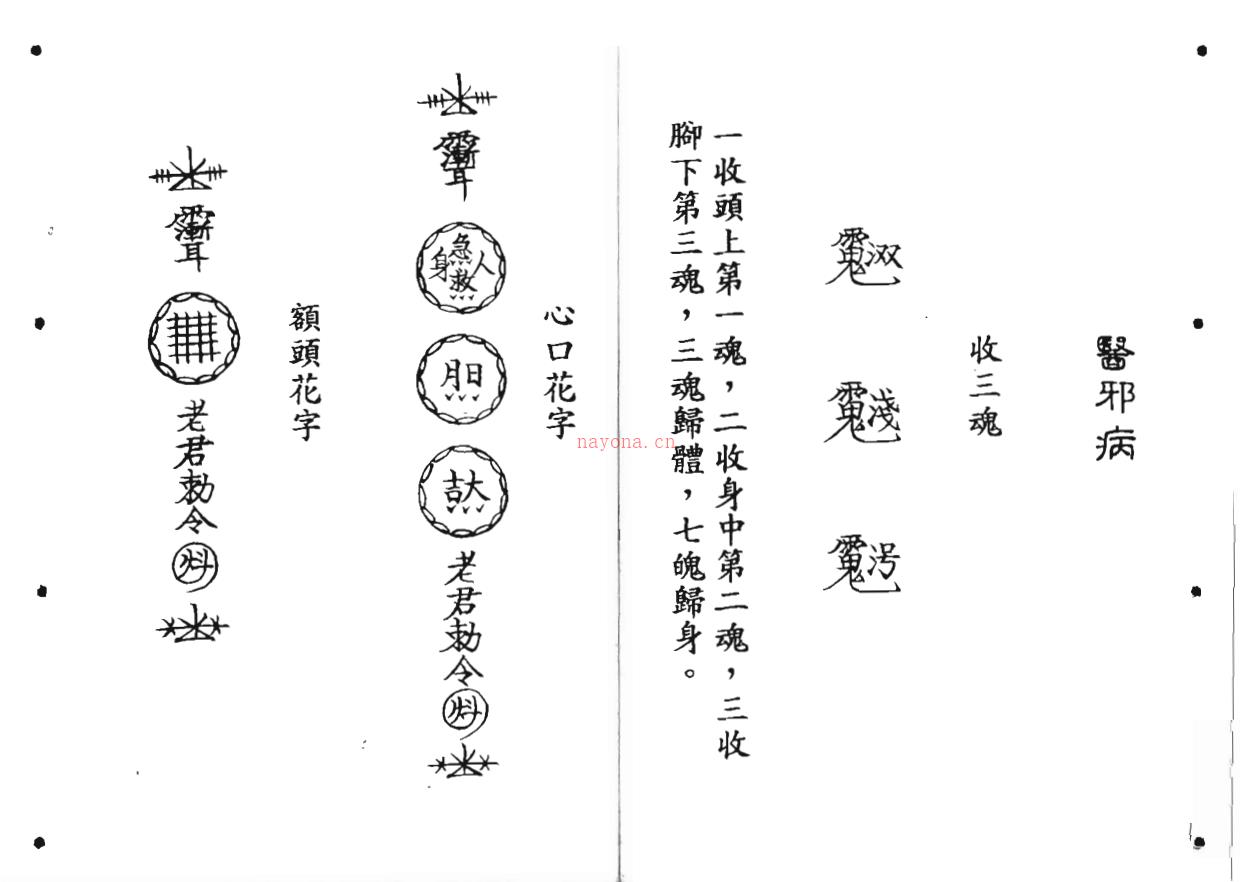 醫邪病
收三魂
一收頭上第一魂，二收身中第二魂，三收
腳下第三魂，三魂歸體，七魄歸身。
心口花字
急救
人
身
大吉
老君勅令
額頭花字
老君勅令
nayona.cn